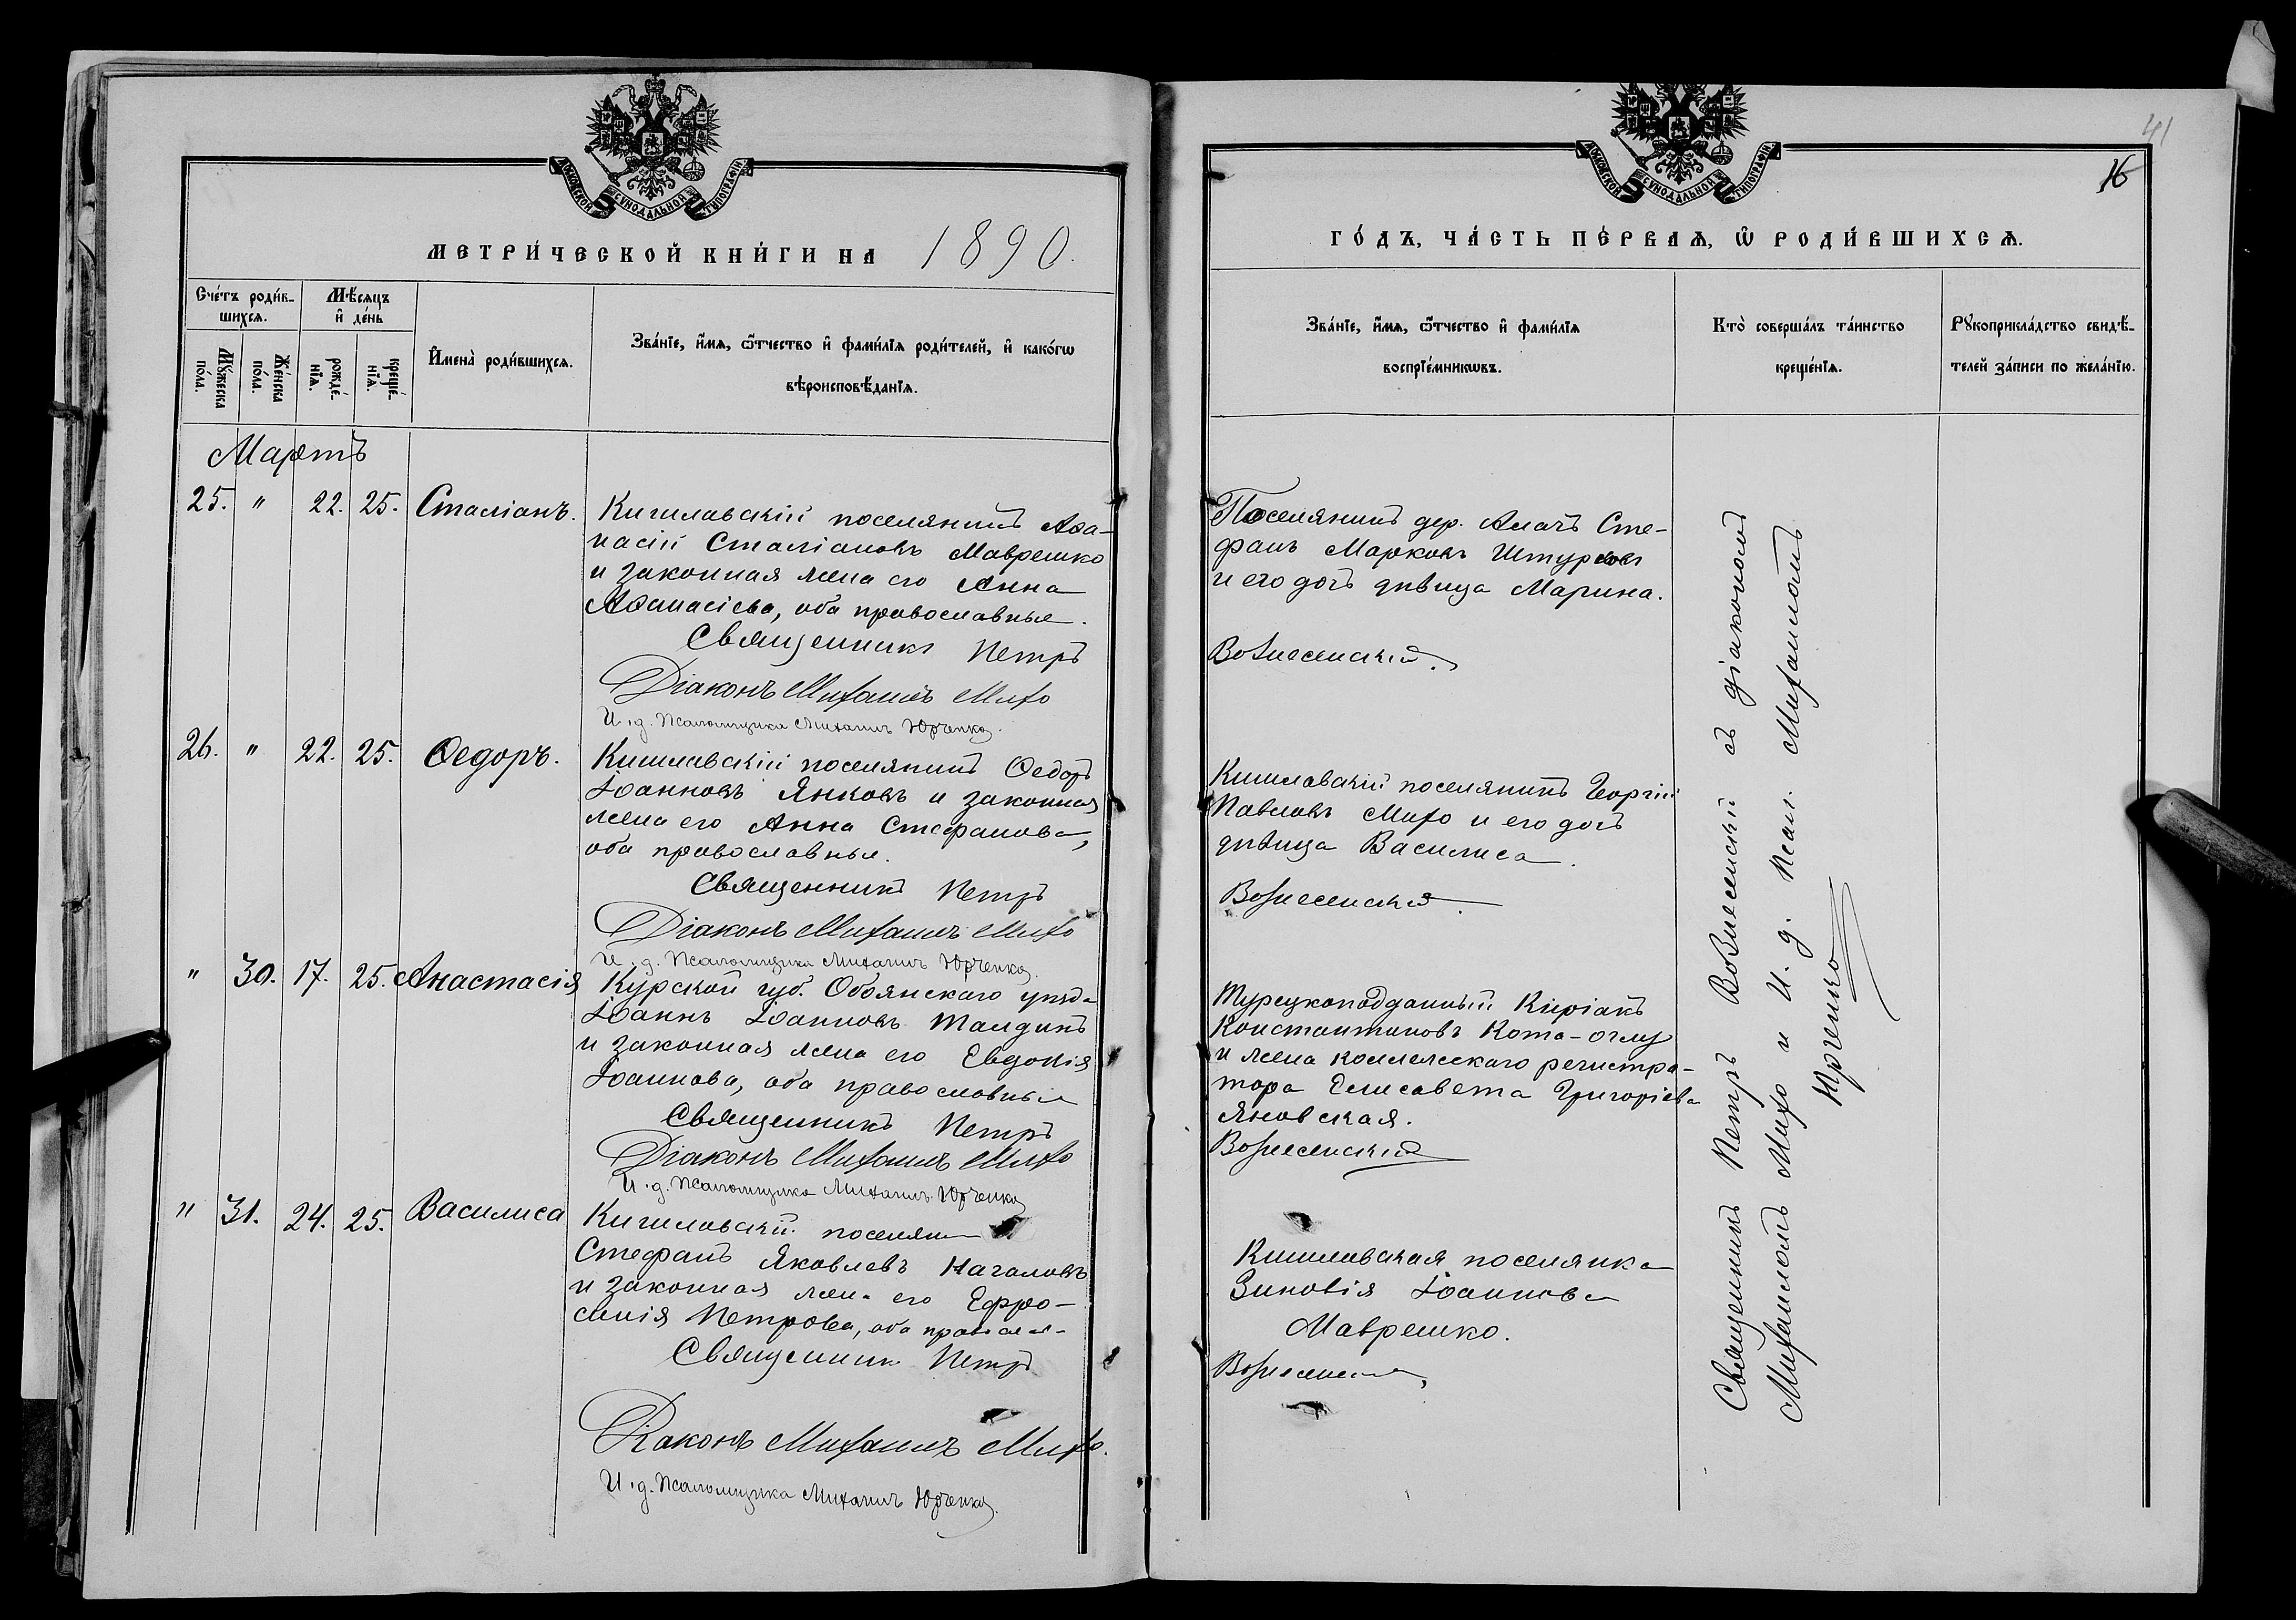 МОСКОВСКОЙ СѴНОДАЛЬНОЙ ТИПОГРАФІИ
МЕТРИ́ЧЕСКОЙ КНИ́ГИ НА 1890.
Сче́тъ роди́в-
шихсѧ.
Мѣ́сѧцъ
и҆ де́нь
Мꙋ́жеска
по́ла.
Же́нска
по́ла.
рожде́-
нїѧ.
креще́-
нїѧ.
И҆мена̀ роди́вшихсѧ.
Зва́нїе, и҆́мѧ, ѻ҆́тчество и҆ фами́лїѧ роди́телей, и҆ како́гѡ
вѣроисповѣ́данїѧ.
Мартъ
25. " 22. 25. Сталіанъ.
Кишлавскій поселянинъ Аѳа-
насій Сталіановъ Маврешко
и законная жена его Анна
Аѳанасіева, оба православные.
Священникъ Петръ
Діаконъ Михаилъ Михо
И. д. Псаломщика Михаилъ Юрченко.
26. " 22. 25. Ѳедоръ.
Кишлавскій поселянинъ Ѳедоръ
Іоанновъ Янковъ и законная
жена его Анна Стефанова,
оба православные.
Священникъ Петръ
Діаконъ Михаилъ Михо
И. д. Псаломщика Михаилъ Юрченко.
" 30. 17. 25. Анастасія
Курской губ. Обоянскаго уѣзда
Іоаннъ Іоанновъ Талдинъ
и законная жена его Евдокія
Іоаннова, оба православные
Священникъ Петръ
Діаконъ Михаилъ Михо
И. д. Псаломщика Михаилъ Юрченко
" 31. 24. 25. Василиса
Кишлавскій поселянин
Стефанъ Яковлевъ Качаловъ
и законная жена его Ефро-
синія Петрова, оба правосл.
Священник Петръ
Діаконъ Михаилъ Михо.
И. д. Псаломщика Михаилъ Юрченко.
41
16
МОСКОВСКОЙ СѴНОДАЛЬНОЙ ТИПОГРАФІИ
ГО́ДЪ, ЧА́СТЬ ПЕ́РВАѦ, Ѡ҆ РОДИ́ВШИХСѦ.
Зва́нїе, и҆́мѧ, ѻ҆́тчество и҆ фами́лїѧ
воспрїе́мникѡвъ.
Кто̀ соверша́лъ та́инство
креще́нїѧ.
Рꙋкоприкла́дство свидѣ́-
телей за́писи по жела́нїю.
Поселянинъ дер. Алачъ Сте-
фанъ Марковъ Штурбовъ
и его дочь дѣвица Марина.
Вознесенскій.
Кишлавскій поселянинъ Георгій
Павловъ Михо и его дочь
дѣвица Василиса.
Вознесенскій.
Турецкоподданный Киріакъ
Константиновъ Кота-оглу
и жена коллежскаго регистра-
тора Елисавета Григоріева
Яновская.
Вознесенскій
Кишлавская поселянка
Зиновія Іоаннова
Маврешко.
Вознесенскій
Священникъ Петръ Вознесенскій съ діакономъ
Михаиломъ Михо и И. д. Псал. Михаиломъ
Юрченко